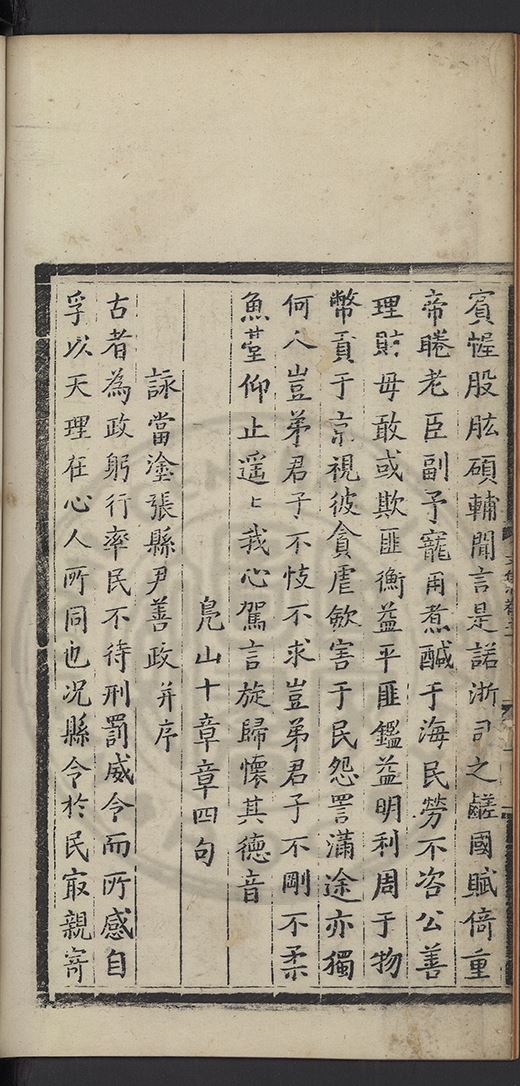 賓幄股肱碩輔聞言是諾浙司之鹺國賦倚重
帝睠老臣副予寵甬煮醎于海民勞不咨公善
理財毋敢或欺匪衡益平匪鑑益明利周于物
幣貢于京視彼貪虐斂害于民怨詈滿途亦獨
何人豈弟君子不忮不求豈弟君子不剛不柔
魚臺仰止遥〻我心駕言旋歸懷其德音
鳧山十章章四句
詠當塗張縣尹善政并序
古者為政躬行率民不待刑罰威令而所感自
孚以天理在心人所同也况縣令於民㝡親寄